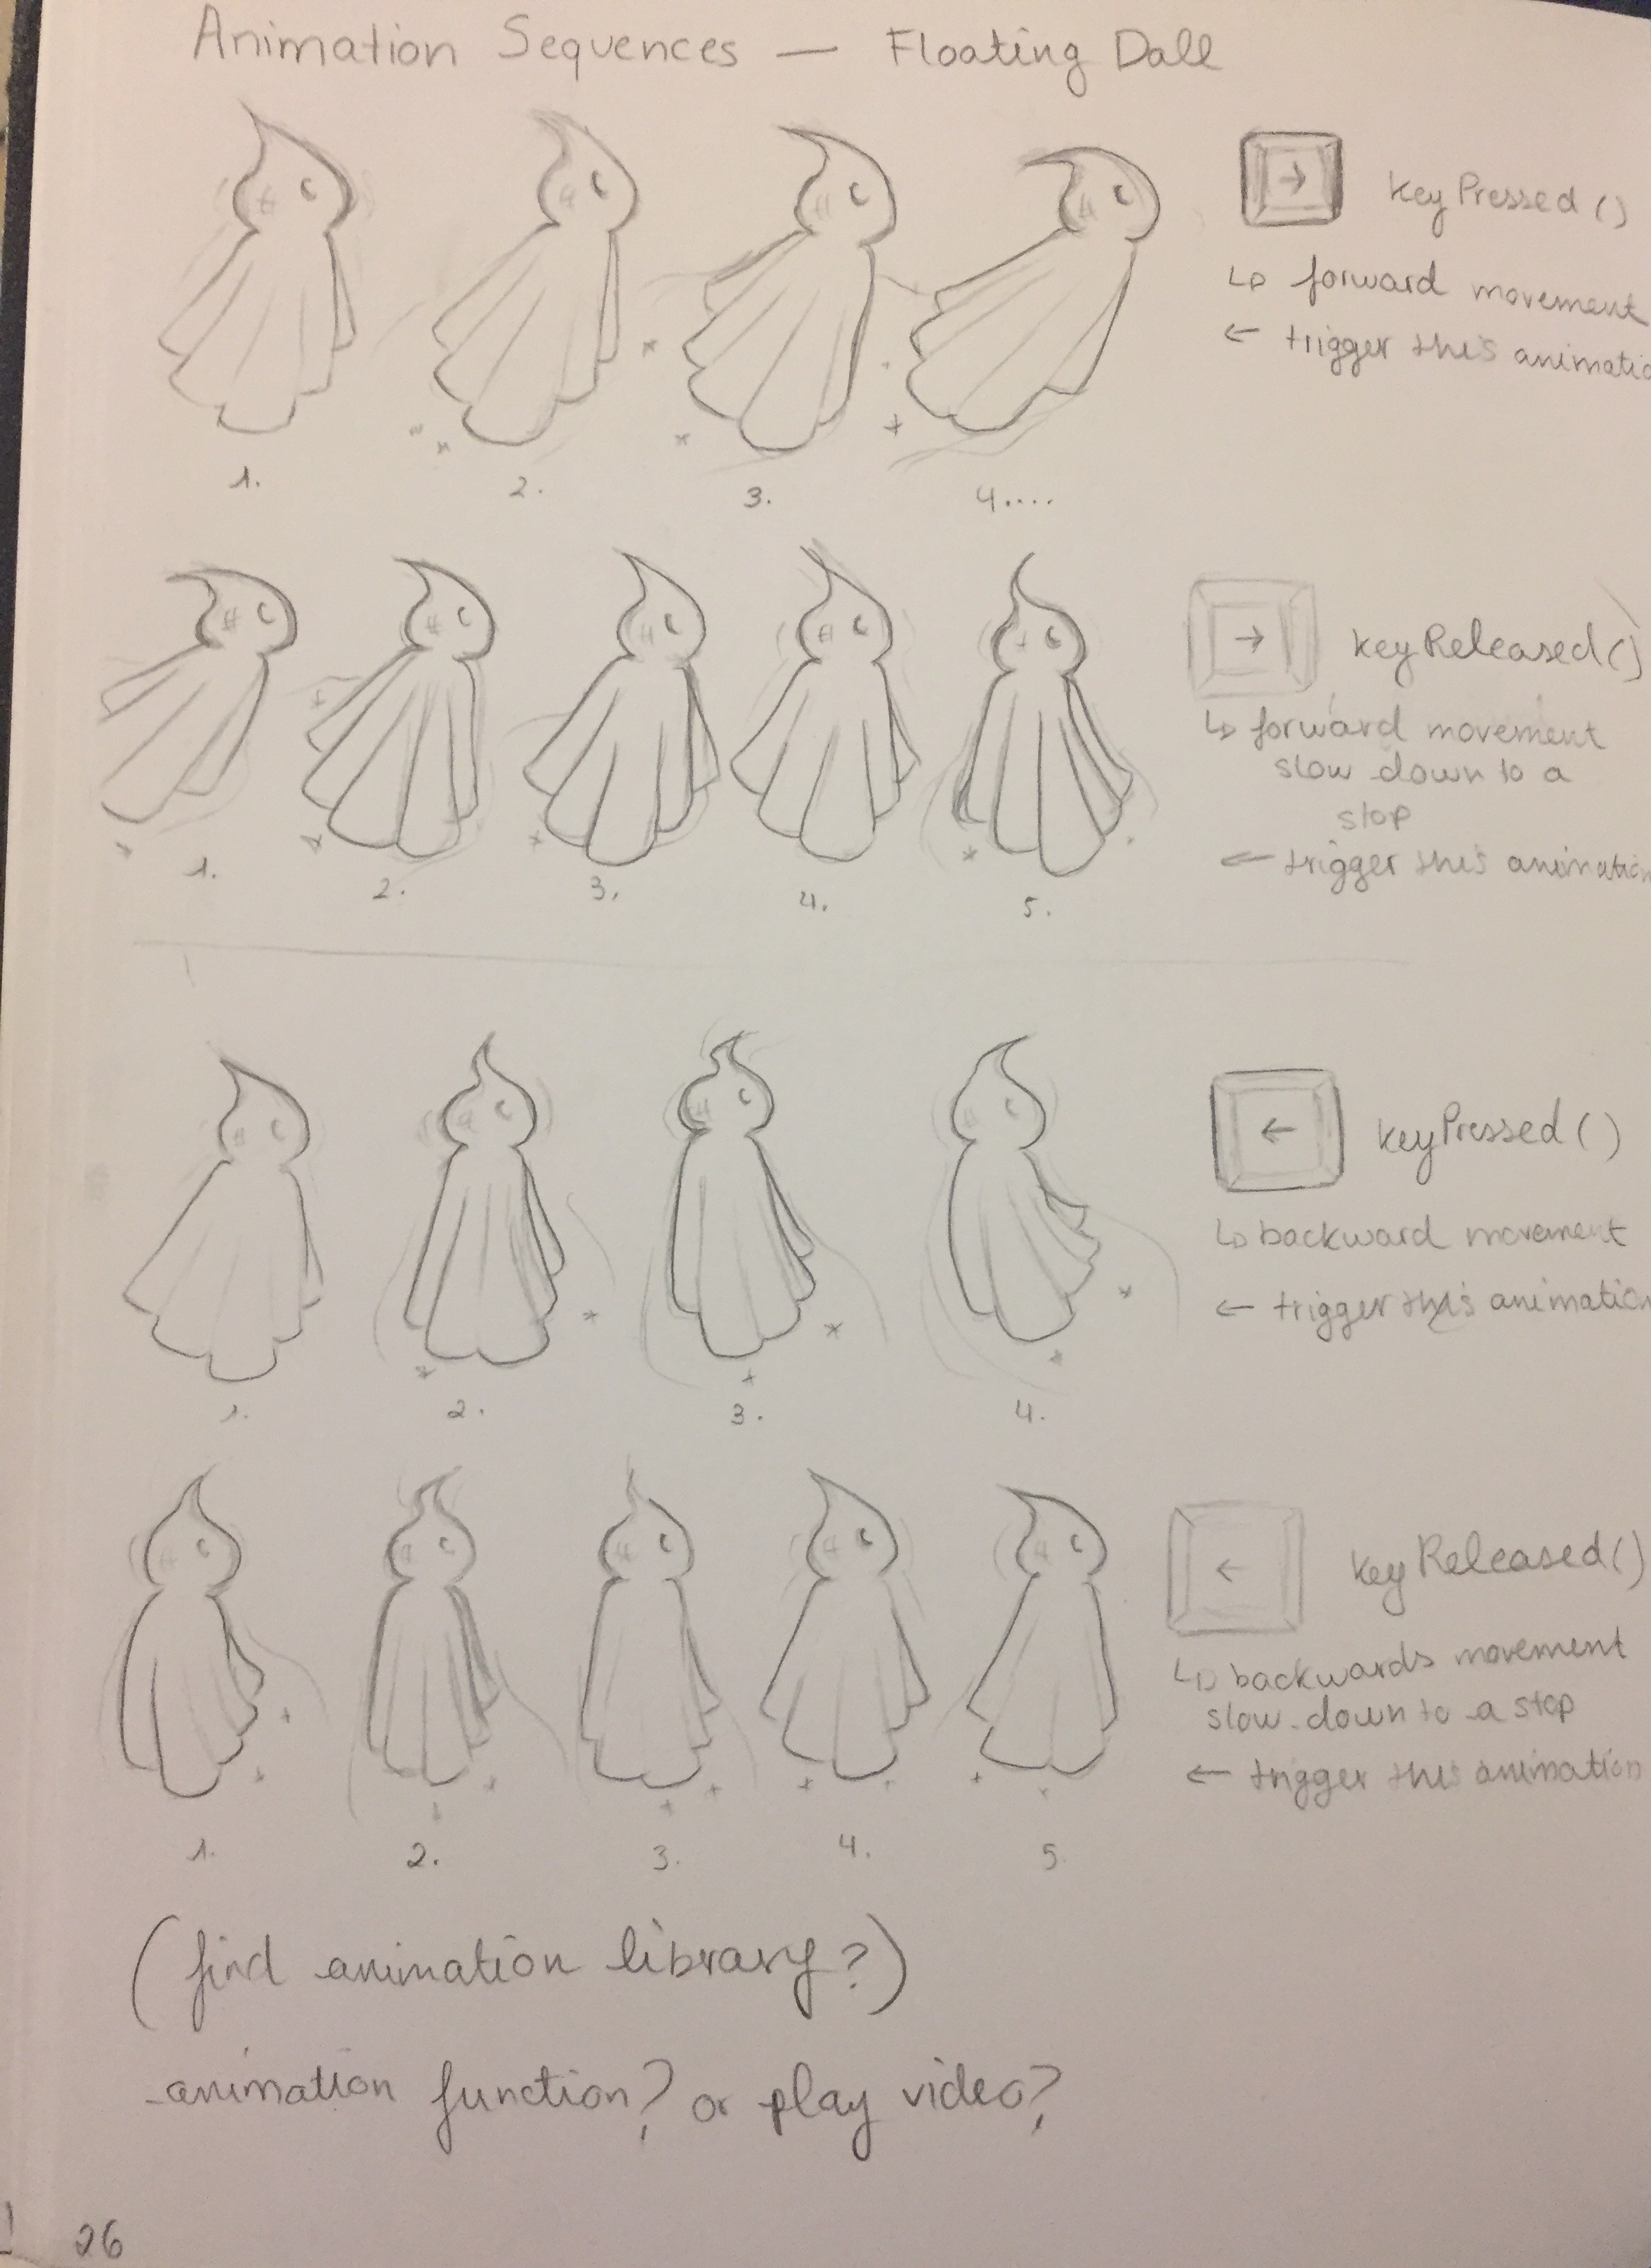 Animation Sequences — Floating Doll
→ keyPressed()
↳ forward movement
← trigger this animatio
1. 2. 3. 4....
→ keyReleased()
↳ forward movement
slow down to a
stop
← trigger this animation
1. 2. 3. 4. 5.
← keyPressed()
↳ backward movement
← trigger this animation
1. 2. 3. 4.
← keyReleased()
↳ backwards movement
slow down to a stop
← trigger this animation
1. 2. 3. 4. 5.
(find animation library?)
animation function? or play video?
26